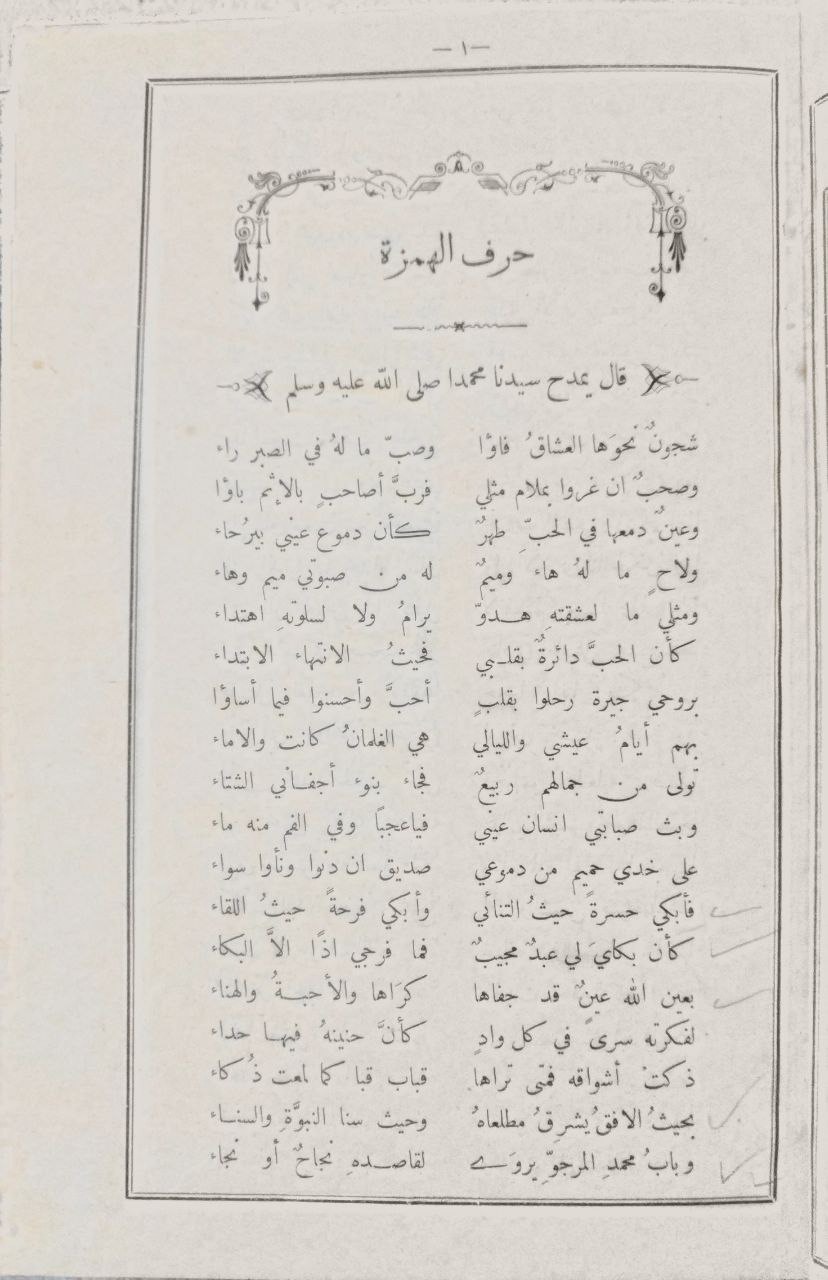 — ١ —
حرف الهمزة
قال يمدح سيدنا محمدا صلى الله عليه وسلم
شجونٌ نحوَها العشاقُ فاؤا وصبّ ما لهُ في الصبر راء
وصحبٌ ان غروا بملام مثلي فربَّ أصاحبٍ بالاإثم باؤا
وعينٌ دمعها في الحبِّ طهرٌ كأن دموع عيني بيرُحاء
ولاحٍ ما لهُ هاء وميمٌ له من صبوتي ميم وهاء
ومثلي ما لعشقتهِ هدوّ يرامُ ولا لسلوتهِ اهتداء
كأن الحبَّ دائرةٌ بقلبي فحيثُ الانتهاء الابتداء
بروحي جيرة رحلوا بقلبٍ أحبَّ وأحسنوا فيما أساؤا
بهم أيامُ عيشي والليالي هي الغلمانُ كانت والاماء
تولى من جمالهم ربيعٌ فجاء بنوء أجفاني الشتاء
وبث صبابتي انسان عيني فياعجبًا وفي الفم منه ماء
على خدي حميم من دموعي صديق ان دنوا ونأوا سواء
فأبكي حسرةً حيثُ التنائي وأبكي فرحةً حيثُ اللقاء
كأن بكايَ لي عبدٌ مجيبٌ فما فرجي اذًا الاَّ البكاء
بعين الله عينٌ قد جفاها كرَاها والأحبةُ والهناء
لفكرته سرىً في كل وادٍ كأنَّ حنينهُ فيها حداء
ذكتْ أشواقه فمتى تراها قباب قبا كما لمعت ذُكاء
بحيثُ الافقُ يشرقُ مطلعاهُ وحيث سنا النبوَّةِ والسناء
وبابُ محمدِ المرجوِّ يروَے لقاصدهِ نجاحٌ أو نجاء